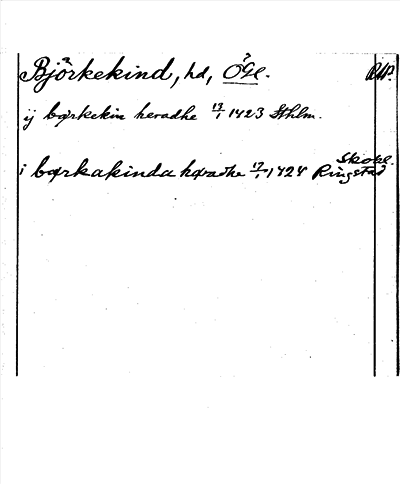 Björkekind, hd, ÖGl. RAP.
ij børkekin heradhe 13/1 1423 Sthlm.
i børkakinda høradhe 17/1 1424 Ringstad